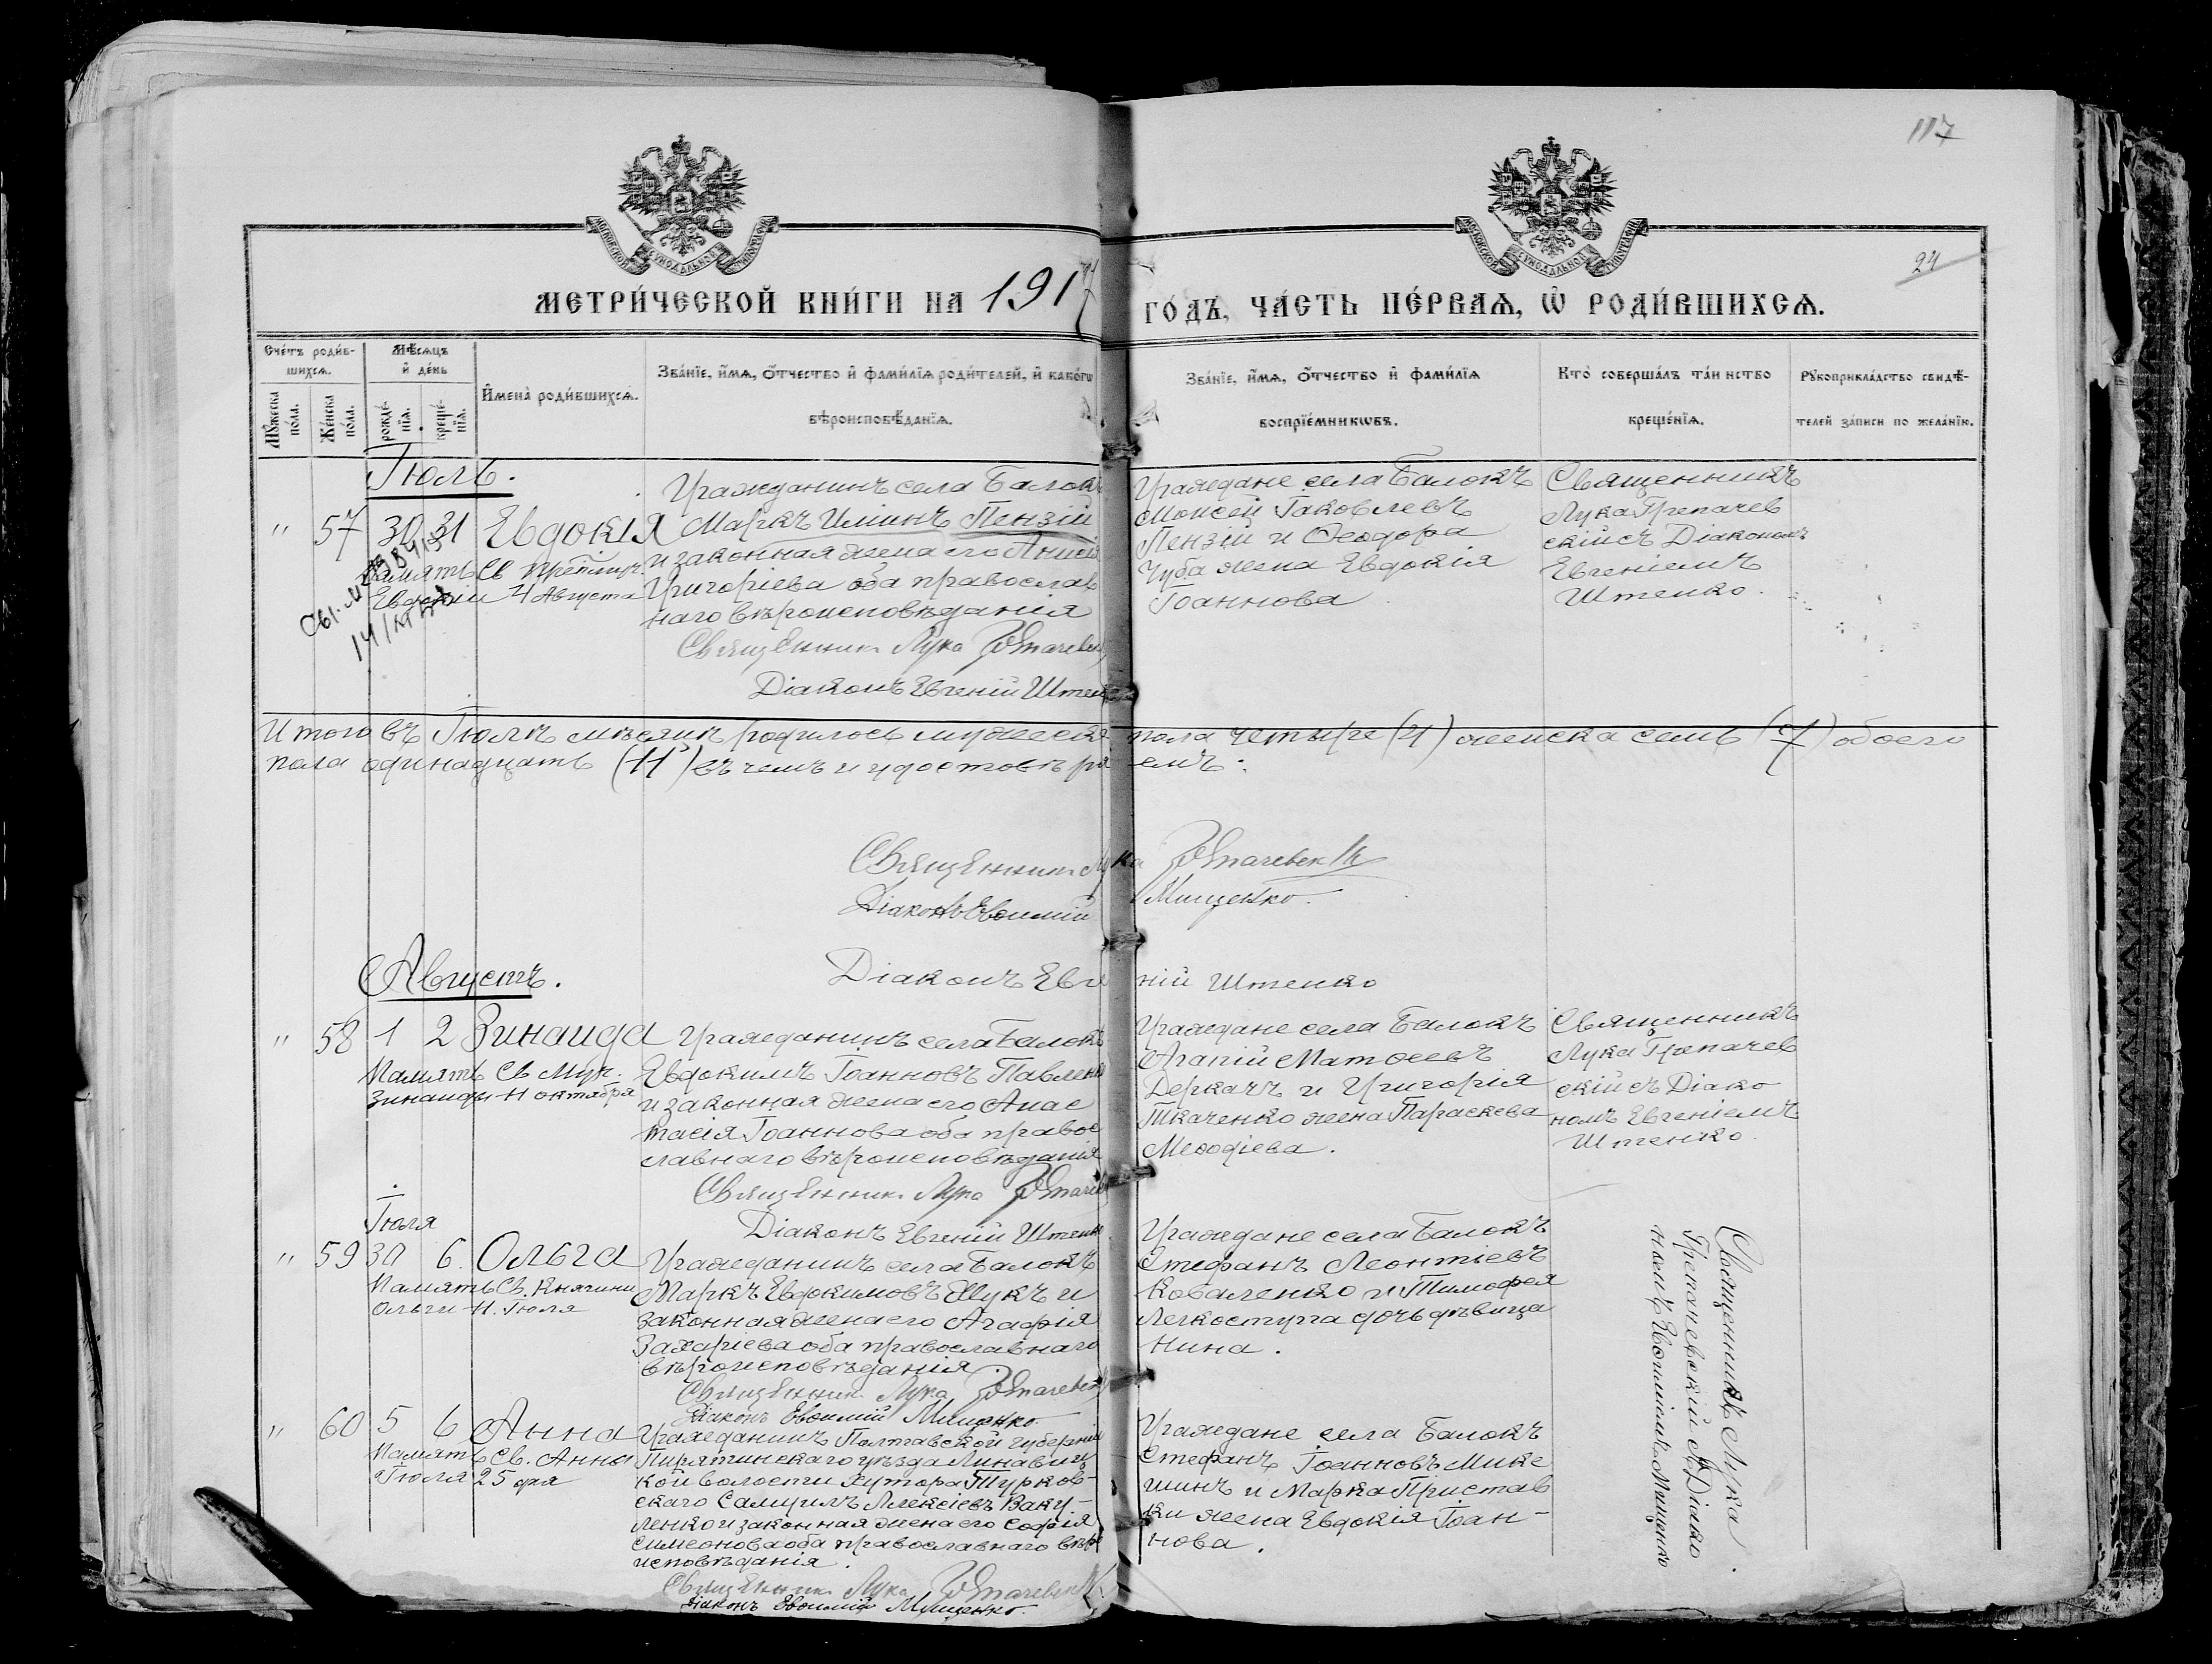 117
24
МОСКОВСКОЙ СѴНОДАЛЬНОЙ ТИПОГРАФІИ
МОСКОВСКОЙ СѴНОДАЛЬНОЙ ТИПОГРАФІИ
МЕТРИ́ЧЕСКОЙ КНИ́ГИ НА 1917 ГО́ДЪ, ЧА́СТЬ ПЕ́РВАѦ, Ѽ РОДИ́ВШИХСѦ.
Сче́тъ роди́в-
шихсѧ.
Мꙋ́жеска по́ла.
Же́нска по́ла.
Мѣ́сѧцъ
и҆ де́нь
рожде́-
нїѧ.
креще́-
нїѧ.
И҆мена̀ роди́вшихсѧ.
Зва́нїе, и҆́мѧ, ѻ҆́тчество и҆ фами́лїѧ роди́телей, и҆ како́гѡ
вѣроисповѣ́данїѧ.
Зва́нїе, и҆́мѧ, ѻ҆́тчество и҆ фами́лїѧ
воспрїе́мникѡвъ.
Кто̀ соверша́лъ та́инство
креще́нїѧ.
Рꙋкоприкла́дство свидѣ́-
телей за́писи по жела́нїю.
Іюль.
" 57 30 31 Евдокія
Память Св Препмуч.
Евдокіи 4 Августа
Гражданинъ села Балокъ
Маркъ Иліинъ Пензій
и законная жена его Анисія
Григоріева оба православ
наго вѣроисповѣданія
Священник Лука Грепачевск
Діаконъ Евгеній Штенко
Граждане села Балокъ
Моисей Іаковлевъ
Пензій и Ѳеодора
Чуба жена Евдокія
Іоаннова
Священникъ
Лука Грепачев
скій съ Діакономъ
Евгеніемъ
Штенко.
Итого въ Іюлѣ мѣсяцѣ родилось мужеска пола четыре (4) женска семь (7) обоего
пола одинадцать (11) въ чемъ и удостовѣряемъ:
Священник Лука Грепачевскій
Діаконъ Евѳимій Мищенко.
Діаконъ Евгеній Штенко
Августъ.
" 58 1 2 Зинаида
Память Св Муч.
Зинаиды 11 октября
Гражданинъ села Балокъ
Евдокимъ Іоанновъ Павленко
и законная жена его Анас
тасія Іоаннова оба право
славнаго вѣроисповѣданія
Священник Лука Грепачев
Діаконъ Евгеній Штенко
Граждане села Балокъ
Агапій Матѳеевъ
Деркачъ и Григорія
Ткаченко жена Параскева
Меѳодіева.
Священникъ
Лука Грепачев
скій съ Діако
номъ Евгеніемъ
Штенко.
Іюля
" 59 30 6 Ольга
Память Св. Княгини
Ольги 11. Іюля
Гражданинъ села Балокъ
Маркъ Евдокимовъ Жукъ и
законная жена его Агафія
Захаріева оба православнаго
вѣроисповѣданія.
Священник Лука Грепачевск
Діаконъ Евѳимій Мищенко
Граждане села Балокъ
Стефанъ Леонтіевъ
Коваленко и Тимофея
Легкоступа дочь дѣвица
Нина.
Священникъ Лука
Грепачевскій съ Діако
номъ Евѳиміемъ Мищенко
" 60 5 6 Анна
Память Св. Анны
Іюля 25 дня
Гражданинъ Полтавской губерніи
Пирятинскаго уѣзда
кой волости хутора Турков-
скаго Самуилъ Алексіевъ Ваку-
ленко и законная жена его Софія
Симеонова оба православнаго вѣро
исповѣданія.
Священник Лука Грепачевскій
Діаконъ Евѳимій Мищенко.
Граждане села Балокъ
Стефанъ Іоанновъ Микс
шинъ и Марка Пристав
ки жена Евдокія Іоан-
нова.